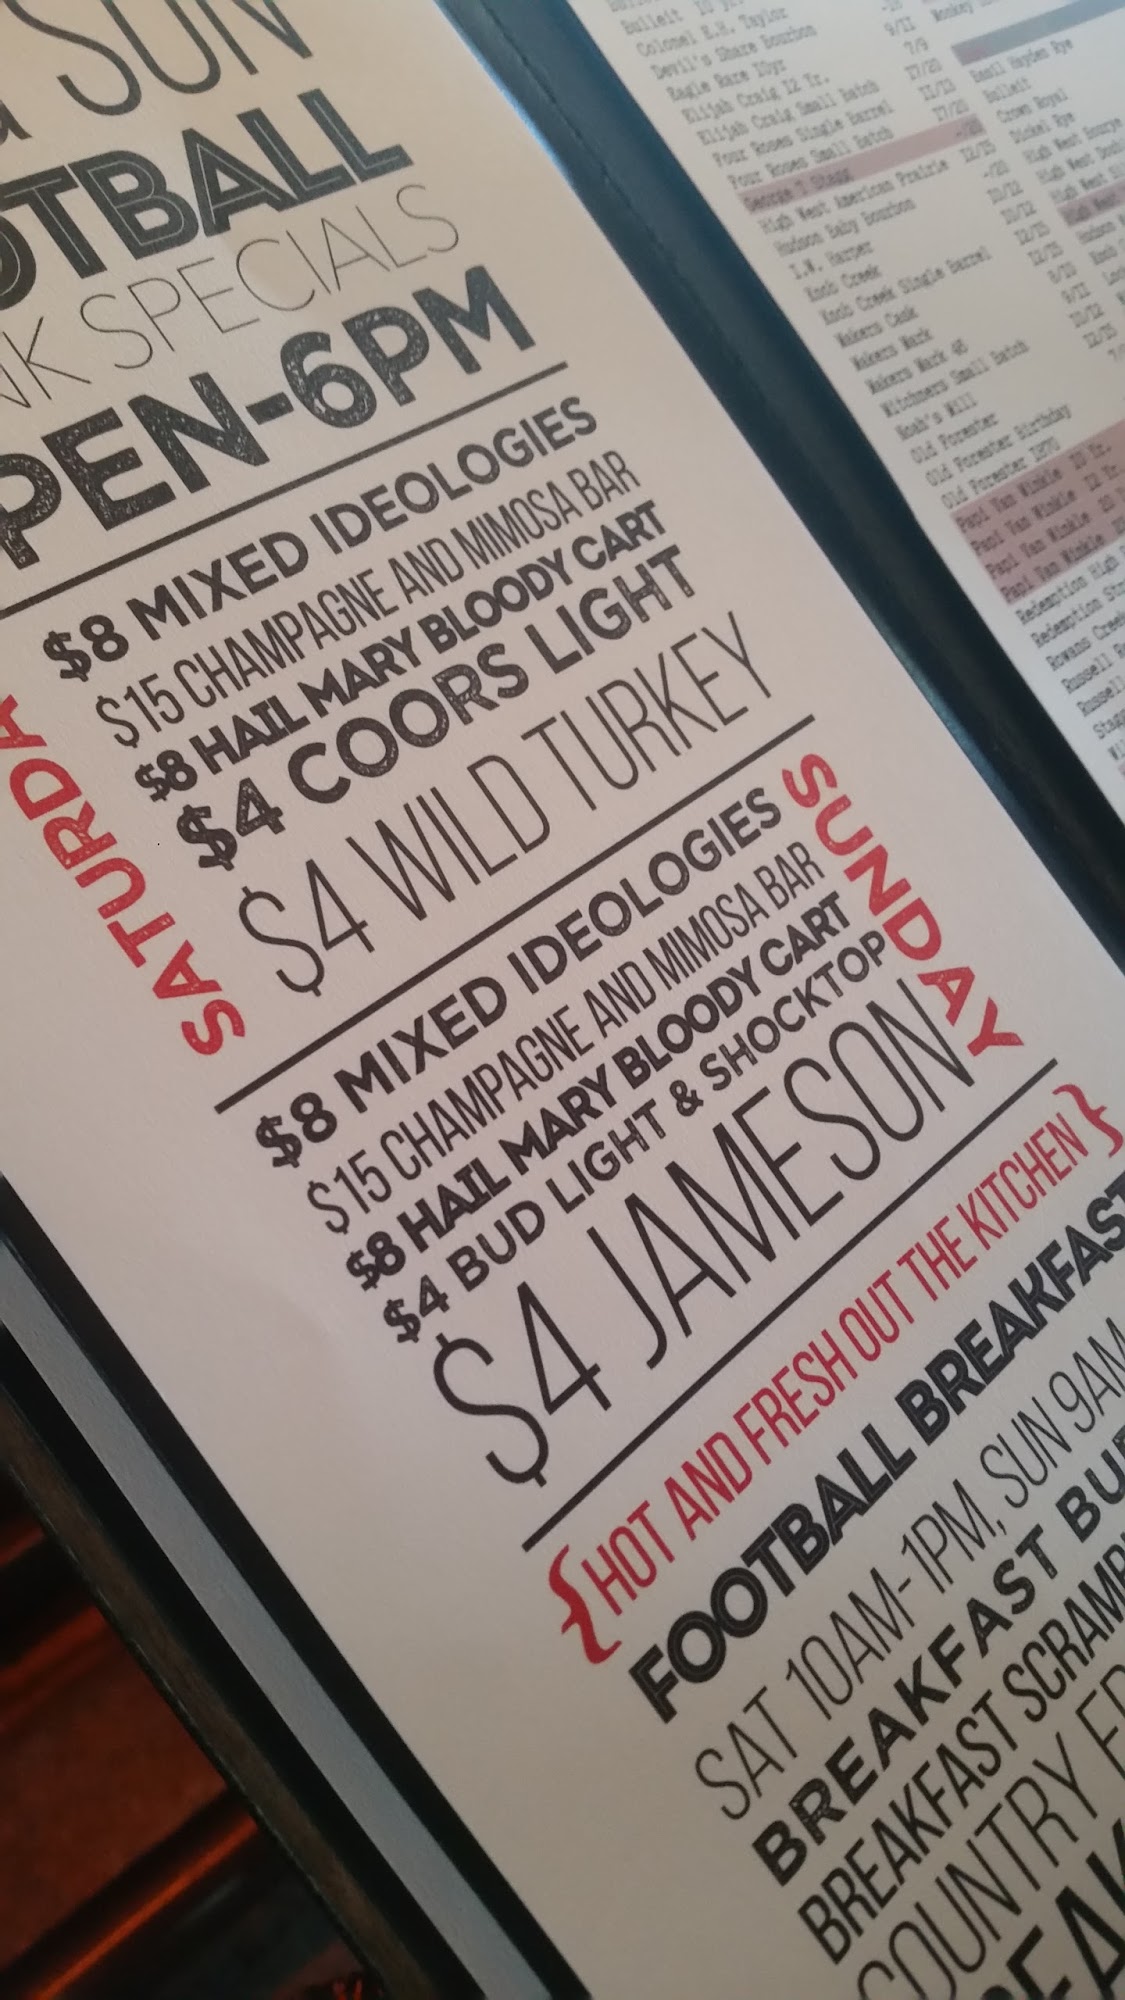 SUN
OTBALL
NK SPECIALS
PEN-6PM
$8 MIXED IDEOLOGIES
$15 CHAMPAGNE AND MIMOSA BAR
$8 HAIL MARY BLOODY CART
$4 COORS LIGHT
$4 WILD TURKEY
SATURDA
$8 MIXED IDEOLOGIES
$15 CHAMPAGNE AND MIMOSA BAR
$8 HAIL MARY BLOODY CART
$4 BUD LIGHT & SHOCKTOP
$4 JAMESON
SUNDAY
{HOT AND FRESH OUT THE KITCHEN}
FOOTBALL BREAKFAST
SAT 10AM-1PM, SUN 9AM
BREAKFAST BU
BREAKFAST SCRAMB
COUNTRY FR
Colonel E.H. Taylor
Devil's Share Bourbon
Eagle Rare 10yr
Elijah Craig 12 Yr.
Elijah Craig Small Batch
Four Roses Single Barrel
Four Roses Small Batch
George T Stagg
High West American Prairie
Hudson Baby Bourbon
I.W. Harper
Knob Creek
Knob Creek Single Barrel
Makers Cask
Makers Mark
Makers Mark 46
Mitchners Small Batch
Noah's Mill
Old Forester
Old Forester Birthday
Old Forester 1870
Papi Van Winkle 10 Yr.
Papi Van Winkle 12 Yr.
Papi Van Winkle
Papi Van Winkle
Redemption High
Redemption
Rowans Creek
Russell
Russell
Basil Hayden Rye
Bulleit
Crown Royal
Dickel Rye